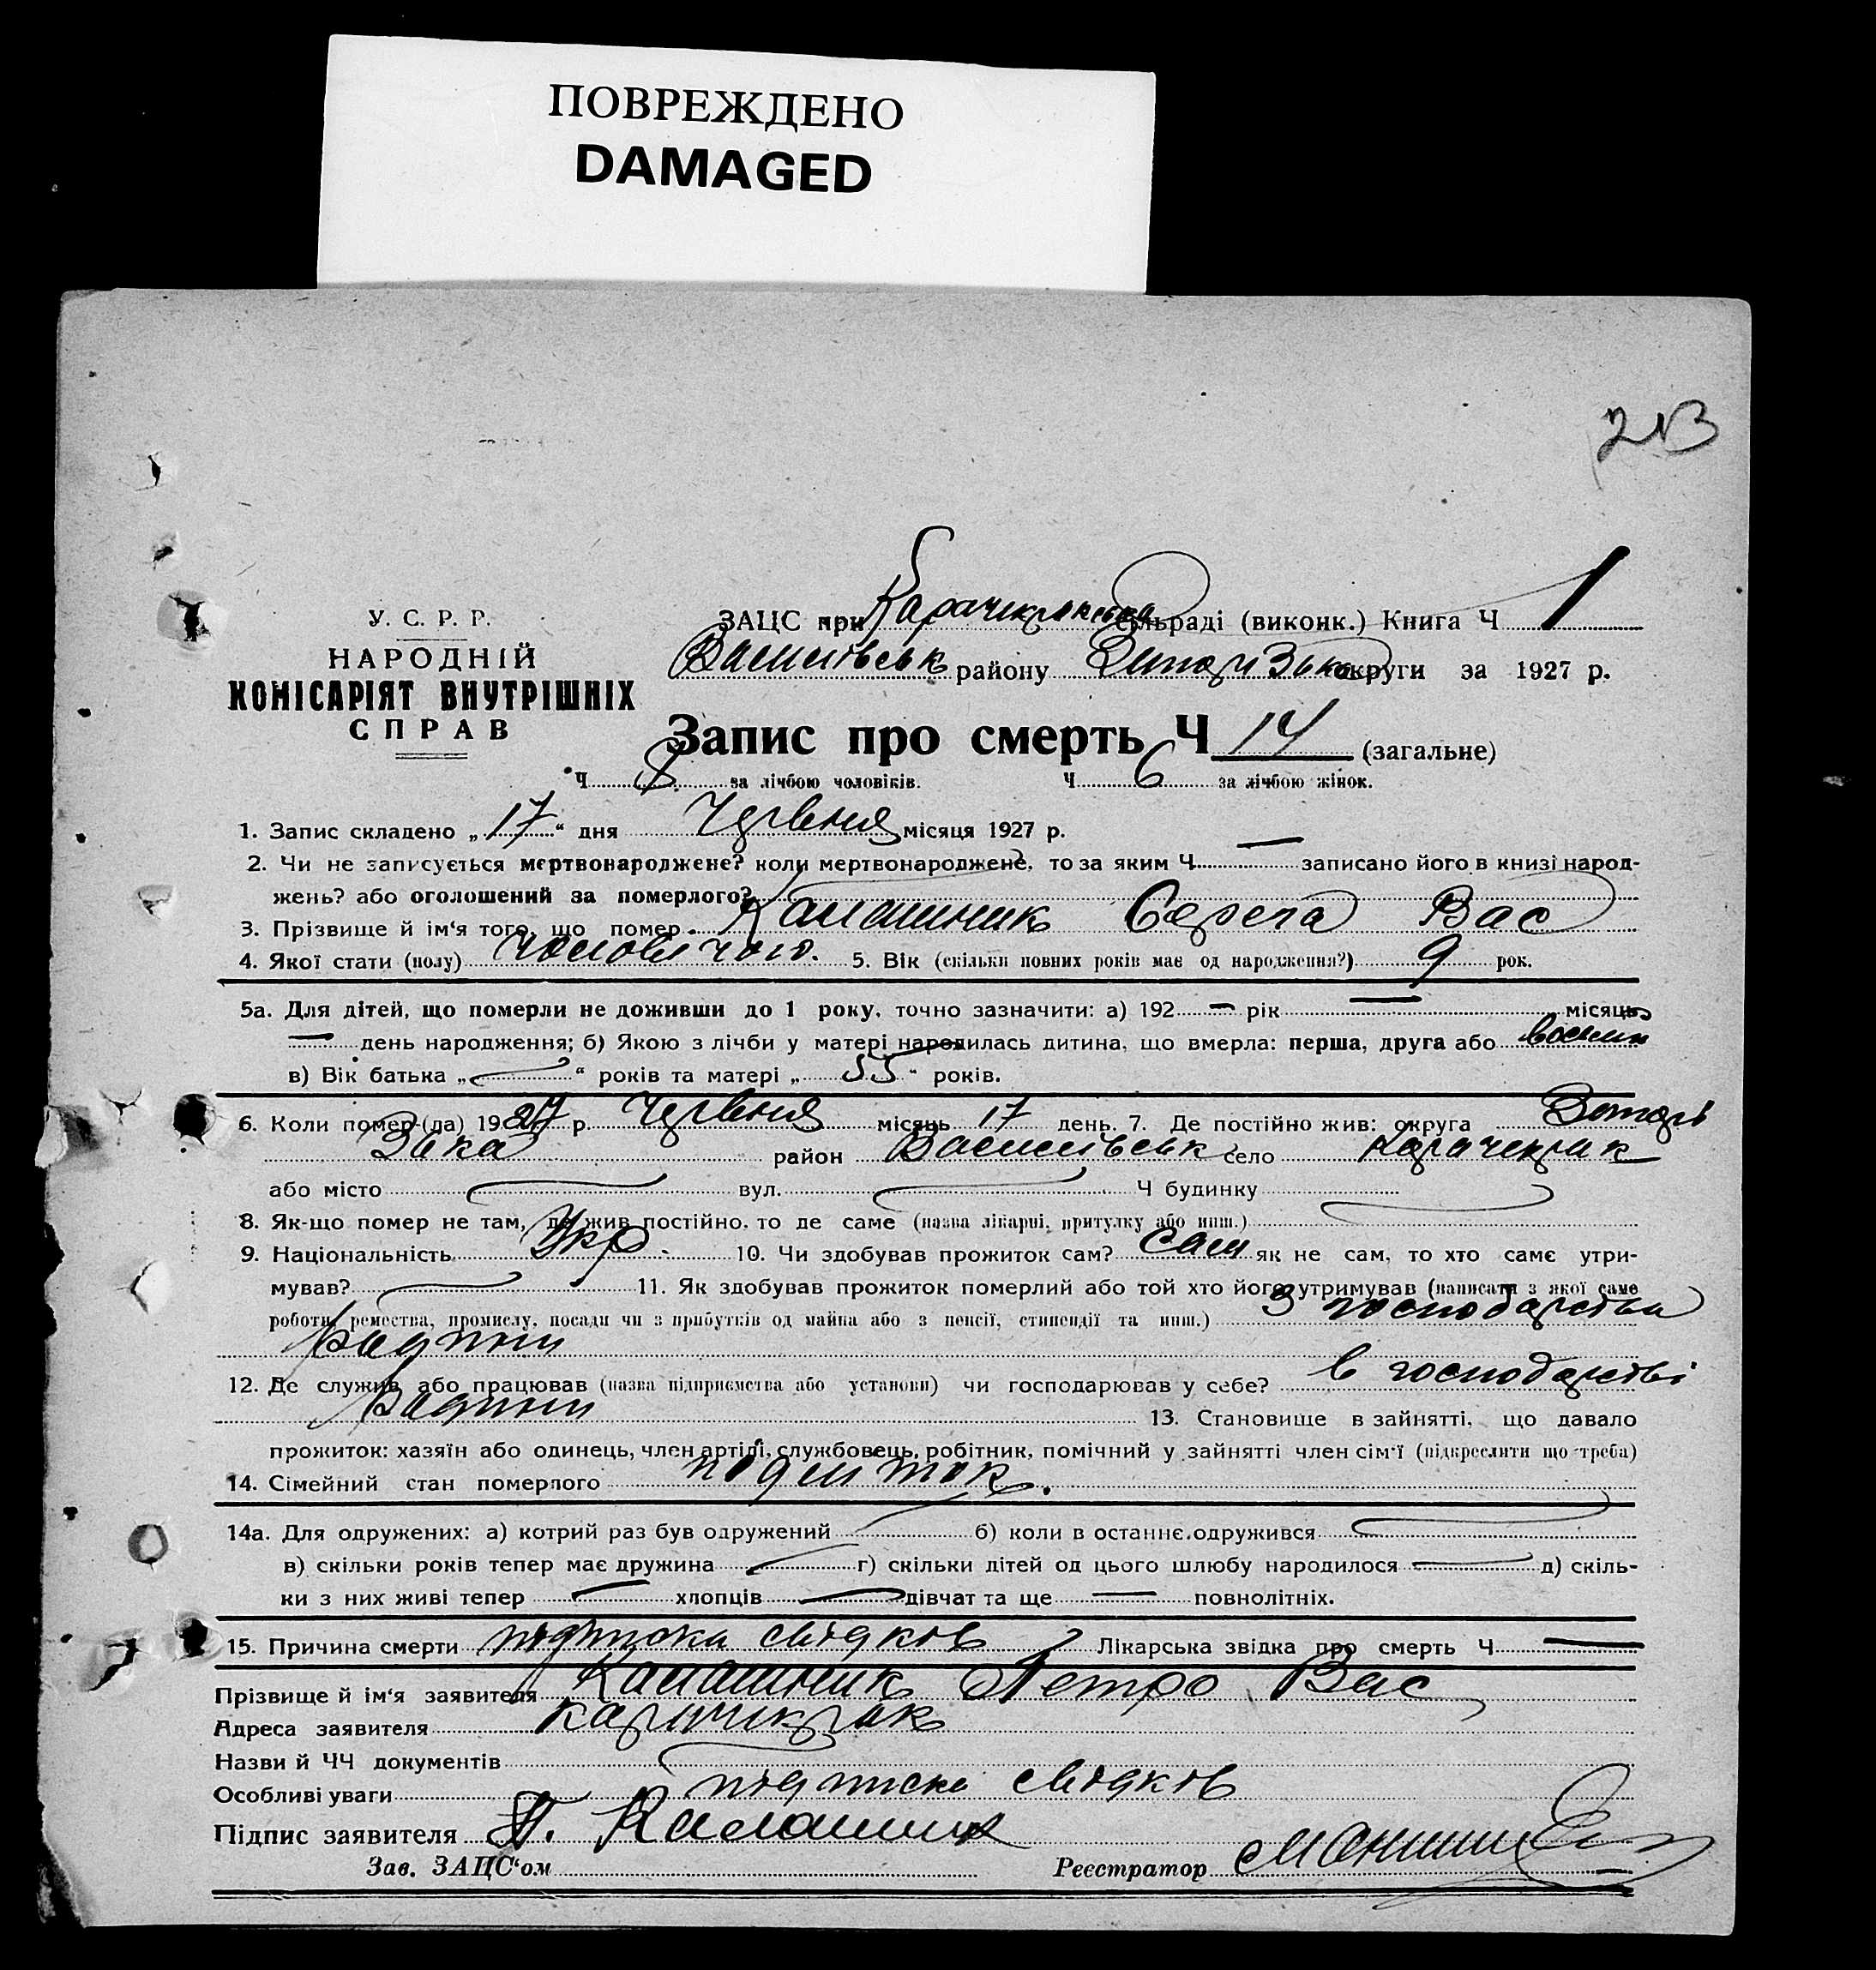 ПОВРЕЖДЕНО
DAMAGED
213
У. С. Р. Р.
НАРОДНІЙ
КОМІСАРІЯТ ВНУТРІШНІХ
СПРАВ
ЗАЦС при Карачекракська сільраді (виконк.) Книга Ч 1
Василівськ району Запорізька округи за 1927 р.
Запис про смерть Ч 14 (загальне)
Ч 8 за лічбою чоловіків. Ч 6 за лічбою жінок.
1. Запис складено „17“ дня Червня місяця 1927 р.
2. Чи не записується мертвонароджене? коли мертвонароджене, то за яким Ч — записано його в книзі народ-
жень? або оголошений за померлого?
3. Прізвище й ім‘я того, що помер Калашник Серега Вас
4. Якої стати (полу) чоловічого. 5. Вік (скільки повних років має од народження?) 9 рок.
5а. Для дітей, що померли не доживши до 1 року, точно зазначити: а) 192 — рік — місяць
— день народження; б) Якою з лічби у матері народилась дитина, що вмерла: перша, друга або
в) Вік батька „ — “ років та матері „ 55 “ років.
6. Коли помер-(ла) 1927 р. Червня місяць 17 день. 7. Де постійно жив: округа Запорі
Зька район Василівськ село Карачекрак
або місто — вул. — Ч будинку —
8. Як-що помер не там, де жив постійно, то де саме (назва лікарні, притулку або инш.) —
9. Національність Укр. 10. Чи здобував прожиток сам? Сам як не сам, то хто саме утри-
мував? — 11. Як здобував прожиток померлий або той хто його утримував (написати з якої саме
роботи, ремества, промислу, посади чи з прибутків од майна або з пенсії, стипендії та инш.) З господарства
12. Де служив або працював (назва підприємства або установи) чи господарював у себе? в господарстві
13. Становище в зайнятті, що давало
прожиток: хазяїн або одинець, член артілі, службовець, робітник, помічний у зайнятті член сім‘ї (підкреслити що треба)
14. Сімейний стан померлого підлиток.
14а. Для одружених: а) котрий раз був одружений — б) коли в останнє одружився —
в) скільки років тепер має дружина — г) скільки дітей од цього шлюбу народилося — д) скіль-
ки з них живі тепер — хлопців — дівчат та ще — повнолітніх.
15. Причина смерти підписка свідків Лікарська звідка про смерть Ч —
Прізвище й ім‘я заявителя Калашник Петро Вас
Адреса заявителя Карачикрак
Назви й ЧЧ документів —
Особливі уваги підписка свідків
Підпис заявителя П. Калашник
Зав. ЗАЦС‘ом Реєстратор